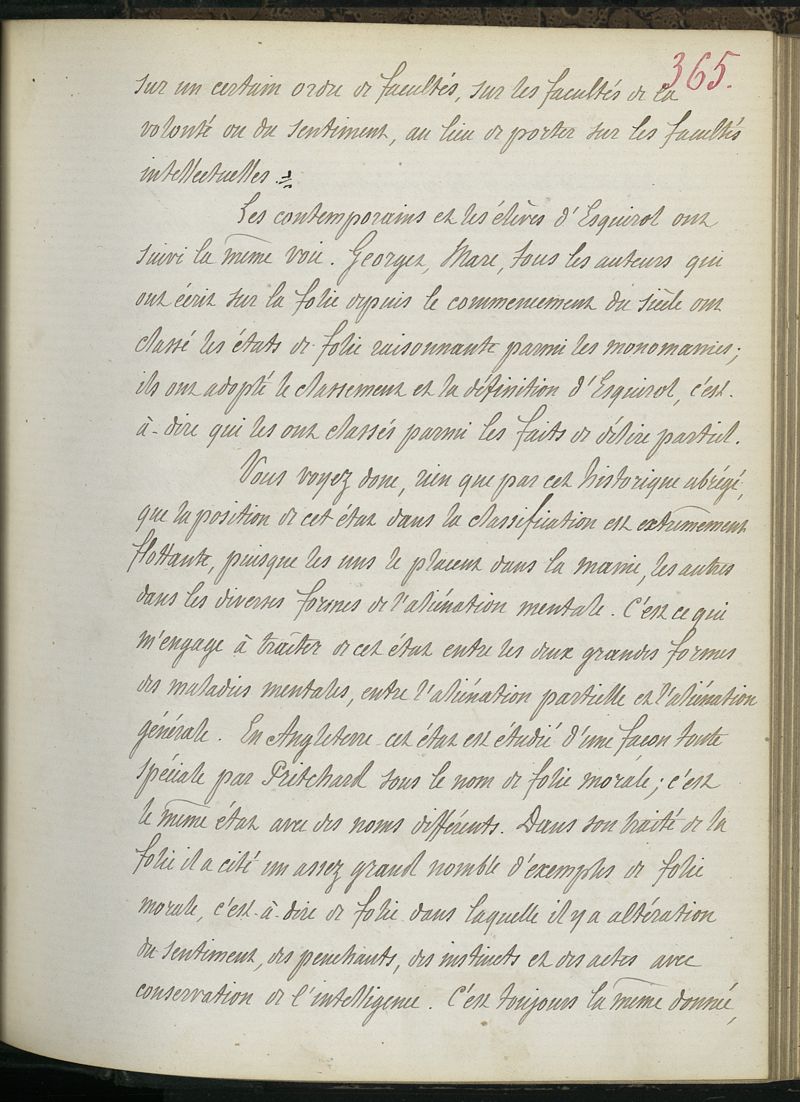 365.
sur un certain ordre de facultés, sur les facultés de la
volonté ou du sentiment, au lieu de porter sur les facultés
intellectuelles.
Les contemporains et les élèves d'Esquirol ont
suivi la même voie. Georget, Marc, tous les auteurs qui
ont écrit sur la folie depuis le commencement du siècle ont
classé les états de folie raisonnante parmi les monomanies;
ils ont adopté le classement et la définition d'Esquirol, c'est-
à-dire qui les ont classés parmi les faits de délire partiel.
Vous voyez donc, rien que par cet historique abrégé,
que la position de cet état dans la classification est extrêmement
flottante, puisque les uns le placent dans la manie, les autres
dans les diverses formes de l'aliénation mentale. C'est ce qui
m'engage à traiter de cet état entre les deux grandes formes
des maladies mentales, entre l'aliénation partielle et l'aliénation
générale. En Angleterre cet état est étudié d'une façon toute
spéciale par Pritchard sous le nom de folie morale; c'est
le même état avec des noms différents. Dans son traité de la
folie il a cité un assez grand nombre d'exemples de folie
morale, c'est-à-dire de folie dans laquelle il y a altération
du sentiment, des penchants, des instincts et des actes avec
conservation de l'intelligence. C'est toujours la même donnée,